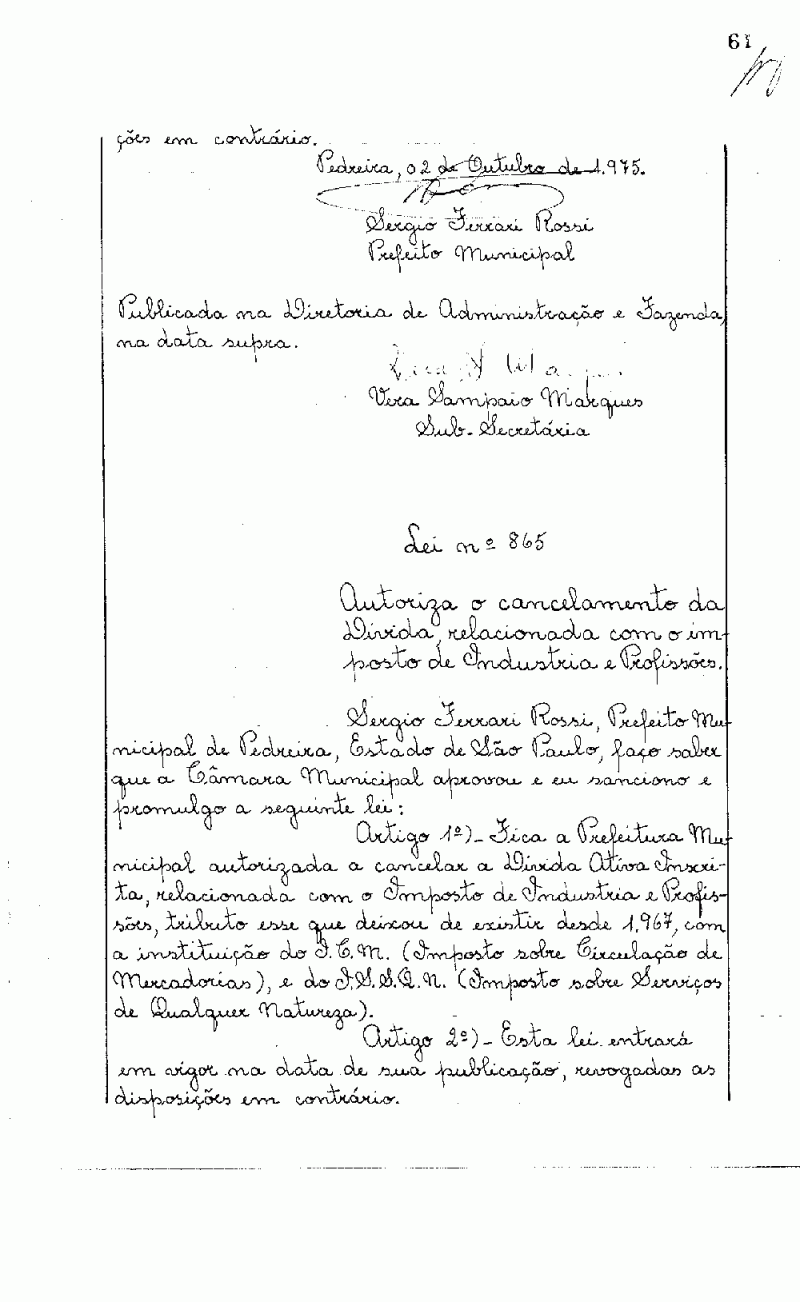 61
ções em contrário.
Pedreira, 02 de Outubro de 1.975.
Sergio Ferrari Rossi
Prefeito Municipal
Publicada na Diretoria de Administração e Fazenda,
na data supra.
Vera Sampaio Marques
Sub-Secretária
Lei nº 865
Autoriza o cancelamento da
Divida, relacionada com o im-
posto de Industria e Profissões.
Sergio Ferrari Rossi, Prefeito Mu-
nicipal de Pedreira, Estado de São Paulo, faço saber
que a Câmara Municipal aprovou e eu sanciono e
promulgo a seguinte lei:
Artigo 1º)- Fica a Prefeitura Mu-
nicipal autorizada a cancelar a Divida Ativa Inscri-
ta, relacionada com o Imposto de Industria e Profis-
sões, tributo esse que deixou de existir desde 1.967, com
a instituição do I.C.M. (Imposto sobre Circulação de
Mercadorias), e do I.S.S.Q.N. (Imposto sobre Serviços
de Qualquer Natureza).
Artigo 2º)- Esta lei entrará
em vigor na data de sua publicação, revogadas as
disposições em contrário.